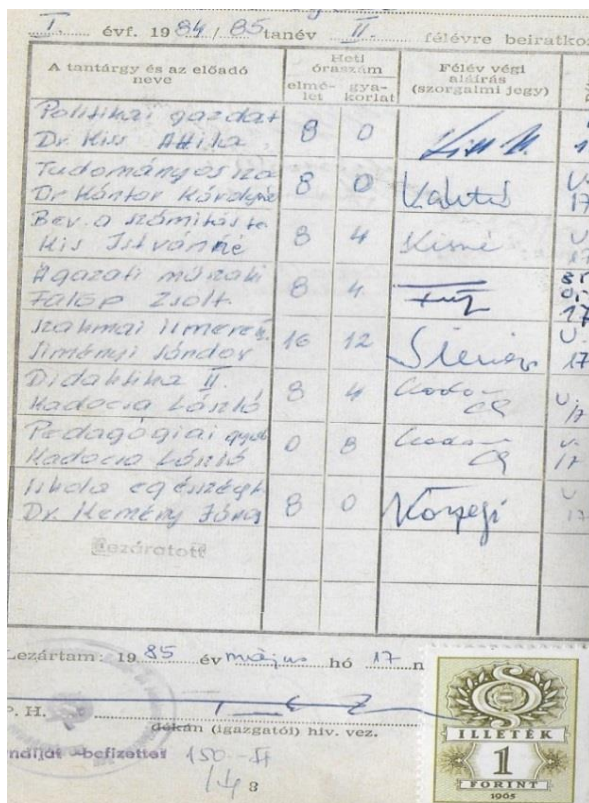 I. évf. 1984/85 tanév II. félévre beiratko
A tantárgy és az előadó neve
Heti óraszám
elmé-let
gya-korlat
Félév végi aláírás (szorgalmi jegy)
Politikai gazdat
Dr. Kiss Attila 8 0
Tudományos szo
Dr Kántor Károlyné 8 0
17
Bev. a számítás te
Kis Istvánné 8 4 Kisné
17
Ágazati műszaki
Fülöp Zsolt 8 4
17
szakmai ismeret
Siményi Sándor 16 12
17
Didaktika II.
Kadocsa László 8 4
17
Pedagógiai gyak
Kadocsa László 0 8
17
Iskola egészségt
Dr. Kemény 8 0
17
Lezáratott
Lezártam: 1985 év május hó 17 n
P. H.
dékán (igazgatói) hiv. vez.
ndíját befizettet 150.- Ft
8
ILLETÉK
1
FORINT
1965